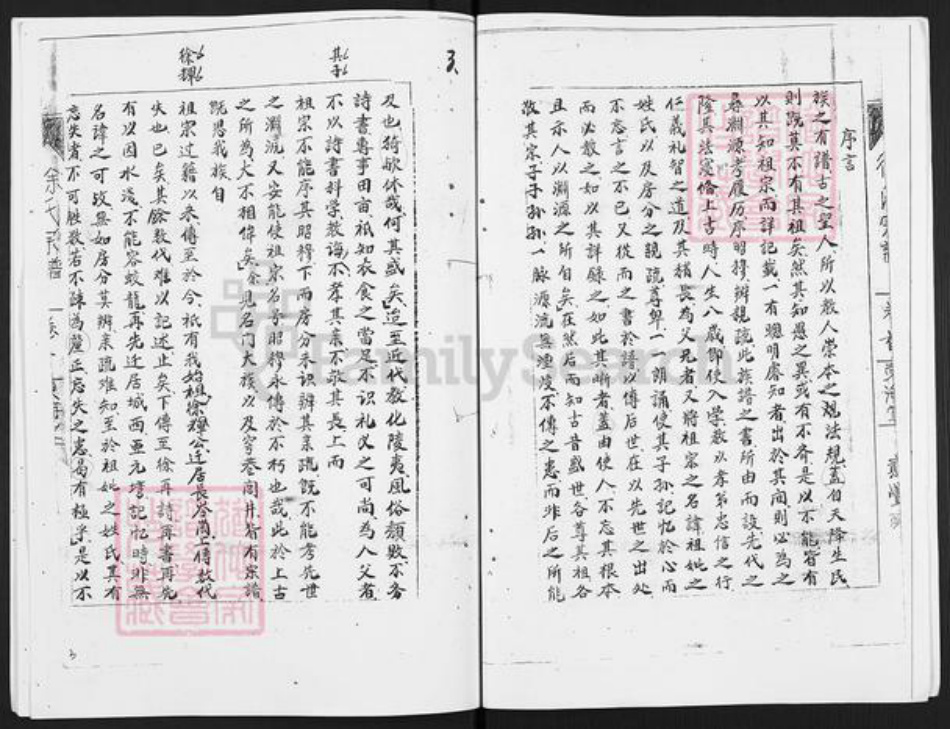 序言
族之有譜古之聖人所以教人崇本之規法規蓋自天降生民
則既莫不有其祖矣然其知愚之異或有不齊是以不能皆有
以其知祖宗而詳記載一有聰明睿知者出於其間則必為之
尋淵源考履历序明穆辨親疏此族譜之書所由而設先代之
隆其法寔倫上古時人生八歲即使入学教以孝弟忠信之行
仁義礼智之道及其稍長為父兄者又將祖宗之名諱祖妣之
姓氏以及房分之親疏尊卑一一朗誦使其子孫記忆於心而
不忘言之不已又從而之書於譜以傳后世在以先世之出处
而必散之如以其詳録之如此其晰者蓋由使人不忘其根本
且示人以淵源之所自矣在然后而知古昔盛世各尊其祖各
敬其宗子子孫孫一脉源流無煙没不傳之患而非后之所能
3
其子
徐輝
及也猗歟休哉何其盛矣迨至近代教化陵夷風俗頹敗不务
詩書專事田亩祇知衣食之當足不识礼义之可尚為人父者
不以詩書科学教誨不孝其亲不敬其長上而
祖宗不能序其昭穆下而房分未识辨其亲疏既不能考先世
之淵源又安能使祖宗名字昭穆永傳於不朽也哉此於上古
之所為大不相侔矣余見名门大族以及穹巷闾井皆有宗譜
既思我族自
祖宗过籍以来傳至於今祇有我始祖徐穆公迁居長岑岗上傳数代
失也已矣其餘数代难以記述止矣下傳至徐再詩再書再先
有以因水浅不能容蛟龍再先迁居城西亜元塆記忆時非無
名諱之可攷無如房分莫辨亲疏难知至於祖妣之姓氏其有
忘失者不可胜数若不踈為釐正忘失之患曷有極乎是以不
余氏宗譜
3
FamilySearch